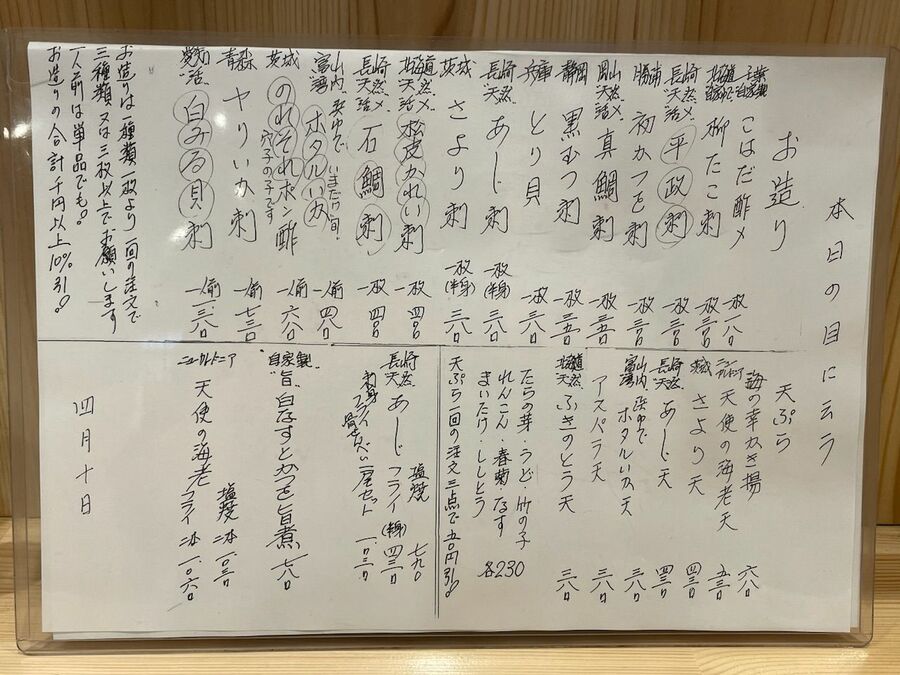 本日の目に云う
お造り
千葉 自家製 こはだ酢〆 一枚 一八〇
北海道 自家ゆで 柳たこ刺 一枚 三三〇
長崎 "天然" 活〆 平政刺 一枚 三三〇
勝浦 初かつを刺 一枚 三三〇
岡山 "天然" 活〆 真鯛刺 一枚 三五〇
静岡 黒むつ刺 一枚 三五〇
兵庫 とり貝 一枚 三三〇
長崎 "天然" あじ刺 一枚(半身) 三八〇
茨城 さより刺 一枚(半身) 三八〇
北海道 "天然" 活〆 松皮かれい刺 一枚 四〇〇
長崎 "天然" 活〆 石鯛刺 一枚 四〇〇
富山湾内 浜ゆで ホタルいか いまだけ旬。 一人前 四八〇
茨城 のれそれポン酢 穴子の子です 一人前 六八〇
青森 ヤりいか刺 一人前 七三〇
愛知 "活" 白みる貝刺 一人前 一、三八〇
お造りは一種類一枚より一回の注文で
三種類又は三枚以上でお願いします
一人前は単品でも。
お造りの合計千円以上10%引!
天ぷら
海の幸かき揚 六八〇
ニューカレドニア 天使の海老天 五三〇
茨城 さより天 四三〇
長崎 "天然" あじ天 四三〇
富山湾内 浜ゆで ホタルいか天 三八〇
アスパラ天 三八〇
北海道 "天然" ふきのとう天 三八〇
たらの芽・うど 竹の子
れんこん・春菊 なす
まいたけ・ししとう 各230
天ぷら一回の注文三点で五〇円引!
長崎 "天然" あじ 塩焼 七九〇
フライ(半身) 四三〇
刺身 フライ 骨せんべい 一尾セット 一、〇三〇
自家製 "旨" 白なすとかつを旨煮 一八〇
ニューカレドニア 天使の海老 塩焼 二本 一、〇三〇
フライ 二本 一、〇六〇
四月十日